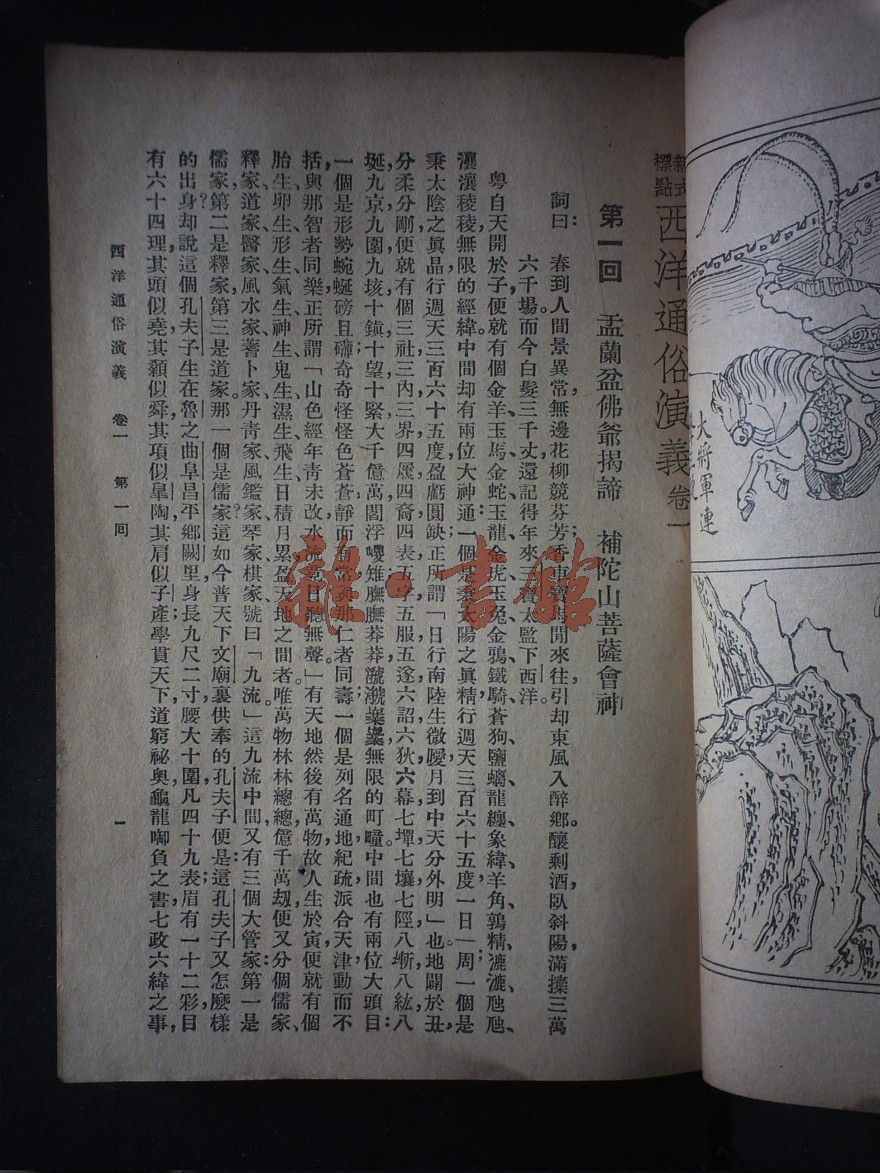 大將軍連
新式標點 西洋通俗演義 卷一
第一回 盂蘭盆佛爺揭諦 補陀山菩薩會神
詞曰：春到人間景異常，無邊花柳競芬芳。香車寶馬閒來往，引却東風入醉鄉。釀剩酒，臥斜陽，滿摟三萬
六千場。而今白髮三千丈，還記得年來三寶太監下西洋。
粵自天開於子，便就有個金羊、玉馬、金蛇、玉龍、金虎、玉兔、金鴉、鐵騎、蒼狗、鹽螭、龍纏、象緯、羊角、鶉精；漉漉虺虺、
瀼瀼稜稜，無限的經緯。中間却有兩位大神通：一個是秉太陽之眞精，行週天三百六十五度，一日一周；一個是
秉太陰之眞晶，行週天三百六十五度，盈虧圓缺，正所謂「日行南陸生微曖，月到中天分外明」也。地闢於丑，
分柔分剛，便就有個三社、三內、三界、四履、四裔、四表、五字、五服、五遂、六詔、六狄、六幕、七墠、七壤、七陘、八埏、八紘、八
埏、九京、九圍、九垓、十鎮、十望、十緊、大千億萬閻浮，嚘嚘雉雉，膴膴莽莽，漲漲，無限的町疃。中間也有兩位大頭目：
一個是形勢蜿蜒，磅且礴，奇奇怪怪，色蒼蒼，靜而有常，與那仁者同壽；一個是列名通地紀，疏派合天津，動而不
括，與那智者同樂。正所謂「山色經年靑未改，水流竟日聽無聲。」有天地，然後有萬物，故人生於寅，便就有個
胎生、卵生、形生、氣生、神生、鬼生、濕生、飛生，日積月累，盈天地之間者，唯萬物林林總總，億千萬刼，便又分個儒家、
釋家、道家、醫家、風水家、蓍卜家、丹靑家、風鑑家、琴家、棋家，號曰「九流」。這九流中間，又有三個大管家：第一是
儒家，第二是釋家，第三是道家。那一個是儒家？這如今普天下文廟裏供奉的孔夫子便是；這孔夫子又怎麽樣
的出身？却說這個孔夫子，生在魯之曲阜昌平鄉闕里，身長九尺二寸，腰大十圍，凡四十九表，眉有一十二彩，目
有六十四理，其頭似堯，其顙似舜，其項似皐陶，其肩似子產，學貫天下，道窮祕奥，龜龍啣負之書，七政六緯之事，
西洋通俗演義 卷一 第一回 一
雜·書館